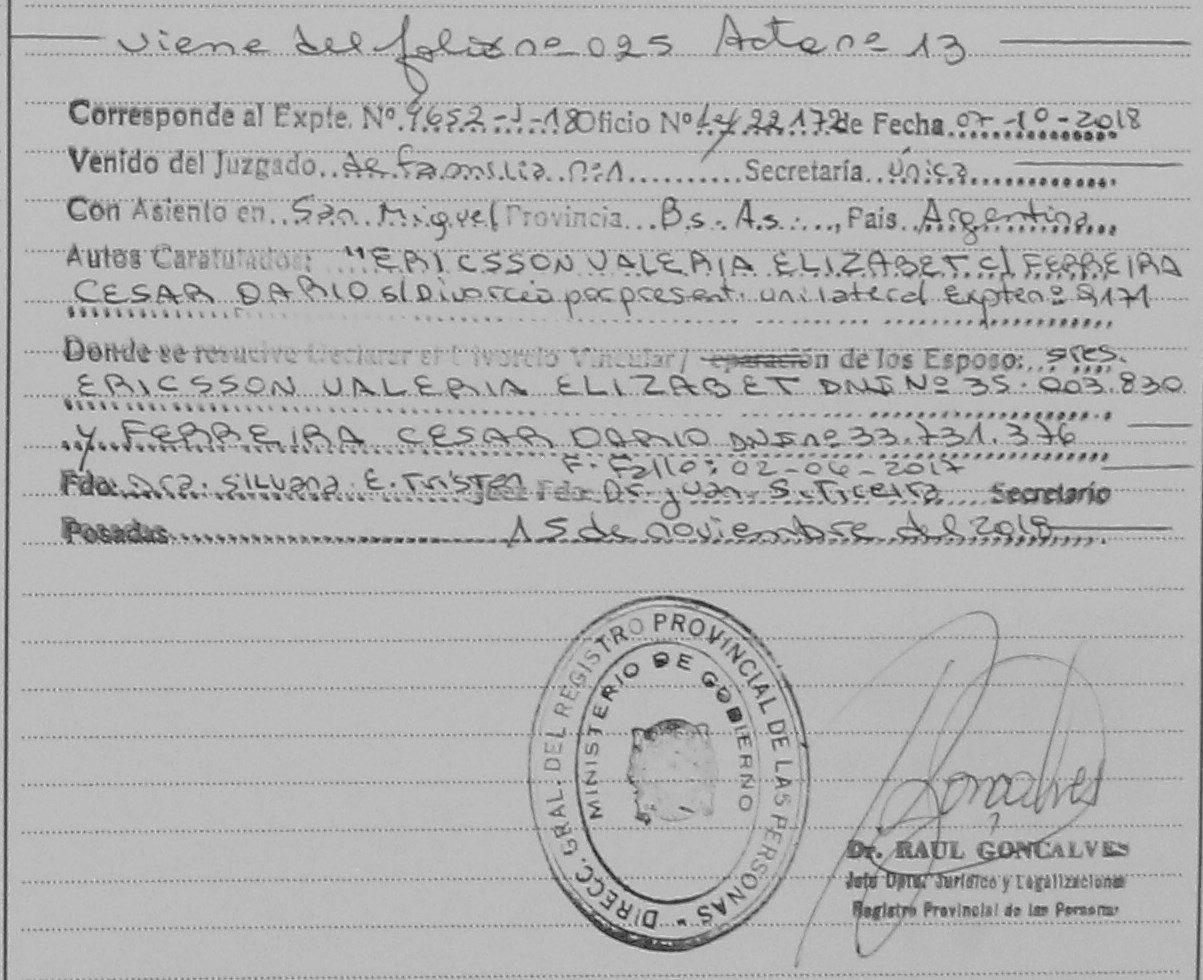 viene del folio nº 025 Acta nº 13
Corresponde al Expte. Nº 9652-J-18 Oficio Nº Ly 22.172 de Fecha 07-10-2018
Venido del Juzgado de familia nº1 Secretaría única
Con Asiento en San Miguel Provincia B.s. A.s., País Argentina
Autos Caratulados: "ERICSSON VALERIA ELIZABET c/ FERREIRA
CESAR DARIO s/Divorcio por present. unilateral Expte nº 9171
Donde se resuelve Declarar el Divorcio Vincular/ eparación de los Esposo: sres.
ERICSSON VALERIA ELIZABET DNI Nº 35.003.830
y FERREIRA CESAR DARIO DNI nº 33.731.376
F. Fallo: 02-06-2017
Fdo: Dra. SILVANA E. Tristen Juez Fdo: Dr. Juan S. Ficeira Secretario
Posadas 15 de noviembre del 2018
DIRECC. GRAL. DEL REGISTRO PROVINCIAL DE LAS PERSONAS
MINISTERIO DE GOBIERNO
Goncalves
Dr. RAUL GONCALVES
Jefe Dpto. Jurídico y Legalizaciones
Registro Provincial de las Personas